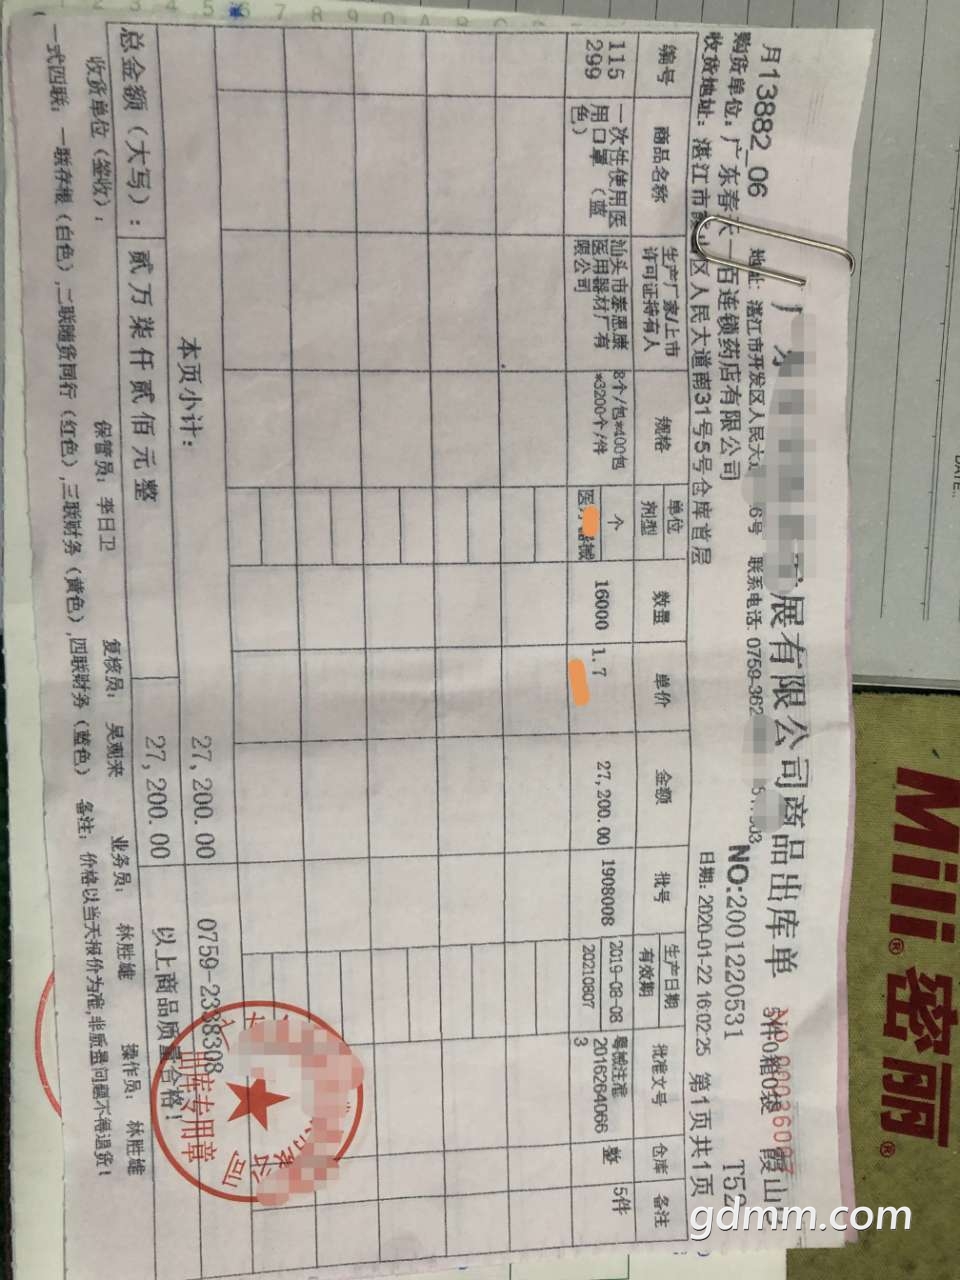 展有限公司商品出库单
5件0箱0袋 霞山
月13882_06
地址: 湛江市开发区人民大 6号 联系电话: 0759-362
NO:2001220531
T52
购货单位: 广东春 一百连锁药店有限公司
日期: 2020-01-22 16:02:25 第1页共1页
收货地址: 湛江市霞山区人民大道南31号5号仓库首层
编号 商品名称 生产厂家/上市许可证持有人 规格 单位 剂型 数量 单价 金额 批号 生产日期 有效期 批准文号 仓库 备注
115299 一次性使用医用口罩(蓝色) 汕头市泰恩康医用器材厂有限公司 8个/包*400包*3200个/件 个 医疗器械 16000 1.7 27,200.00 1908008 2019-08-08 20210807 粤械注准20162640663 整 5件
本页小计: 27,200.00 0759-2338308
总金额(大写): 贰万柒仟贰佰元整 27,200.00 以上商品质量合格!
收货单位(签收): 保管员: 李日卫 复核员: 吴观来 业务员: 林胜雄 操作员: 林胜雄
一式四联: 一联存根(白色),二联随货同行(红色),三联财务(黄色),四联财务(蓝色) 备注: 价格以当天报价为准,非质量问题不得退货!
库专用章
Mili® 密丽®
DATE:
gdmm.com